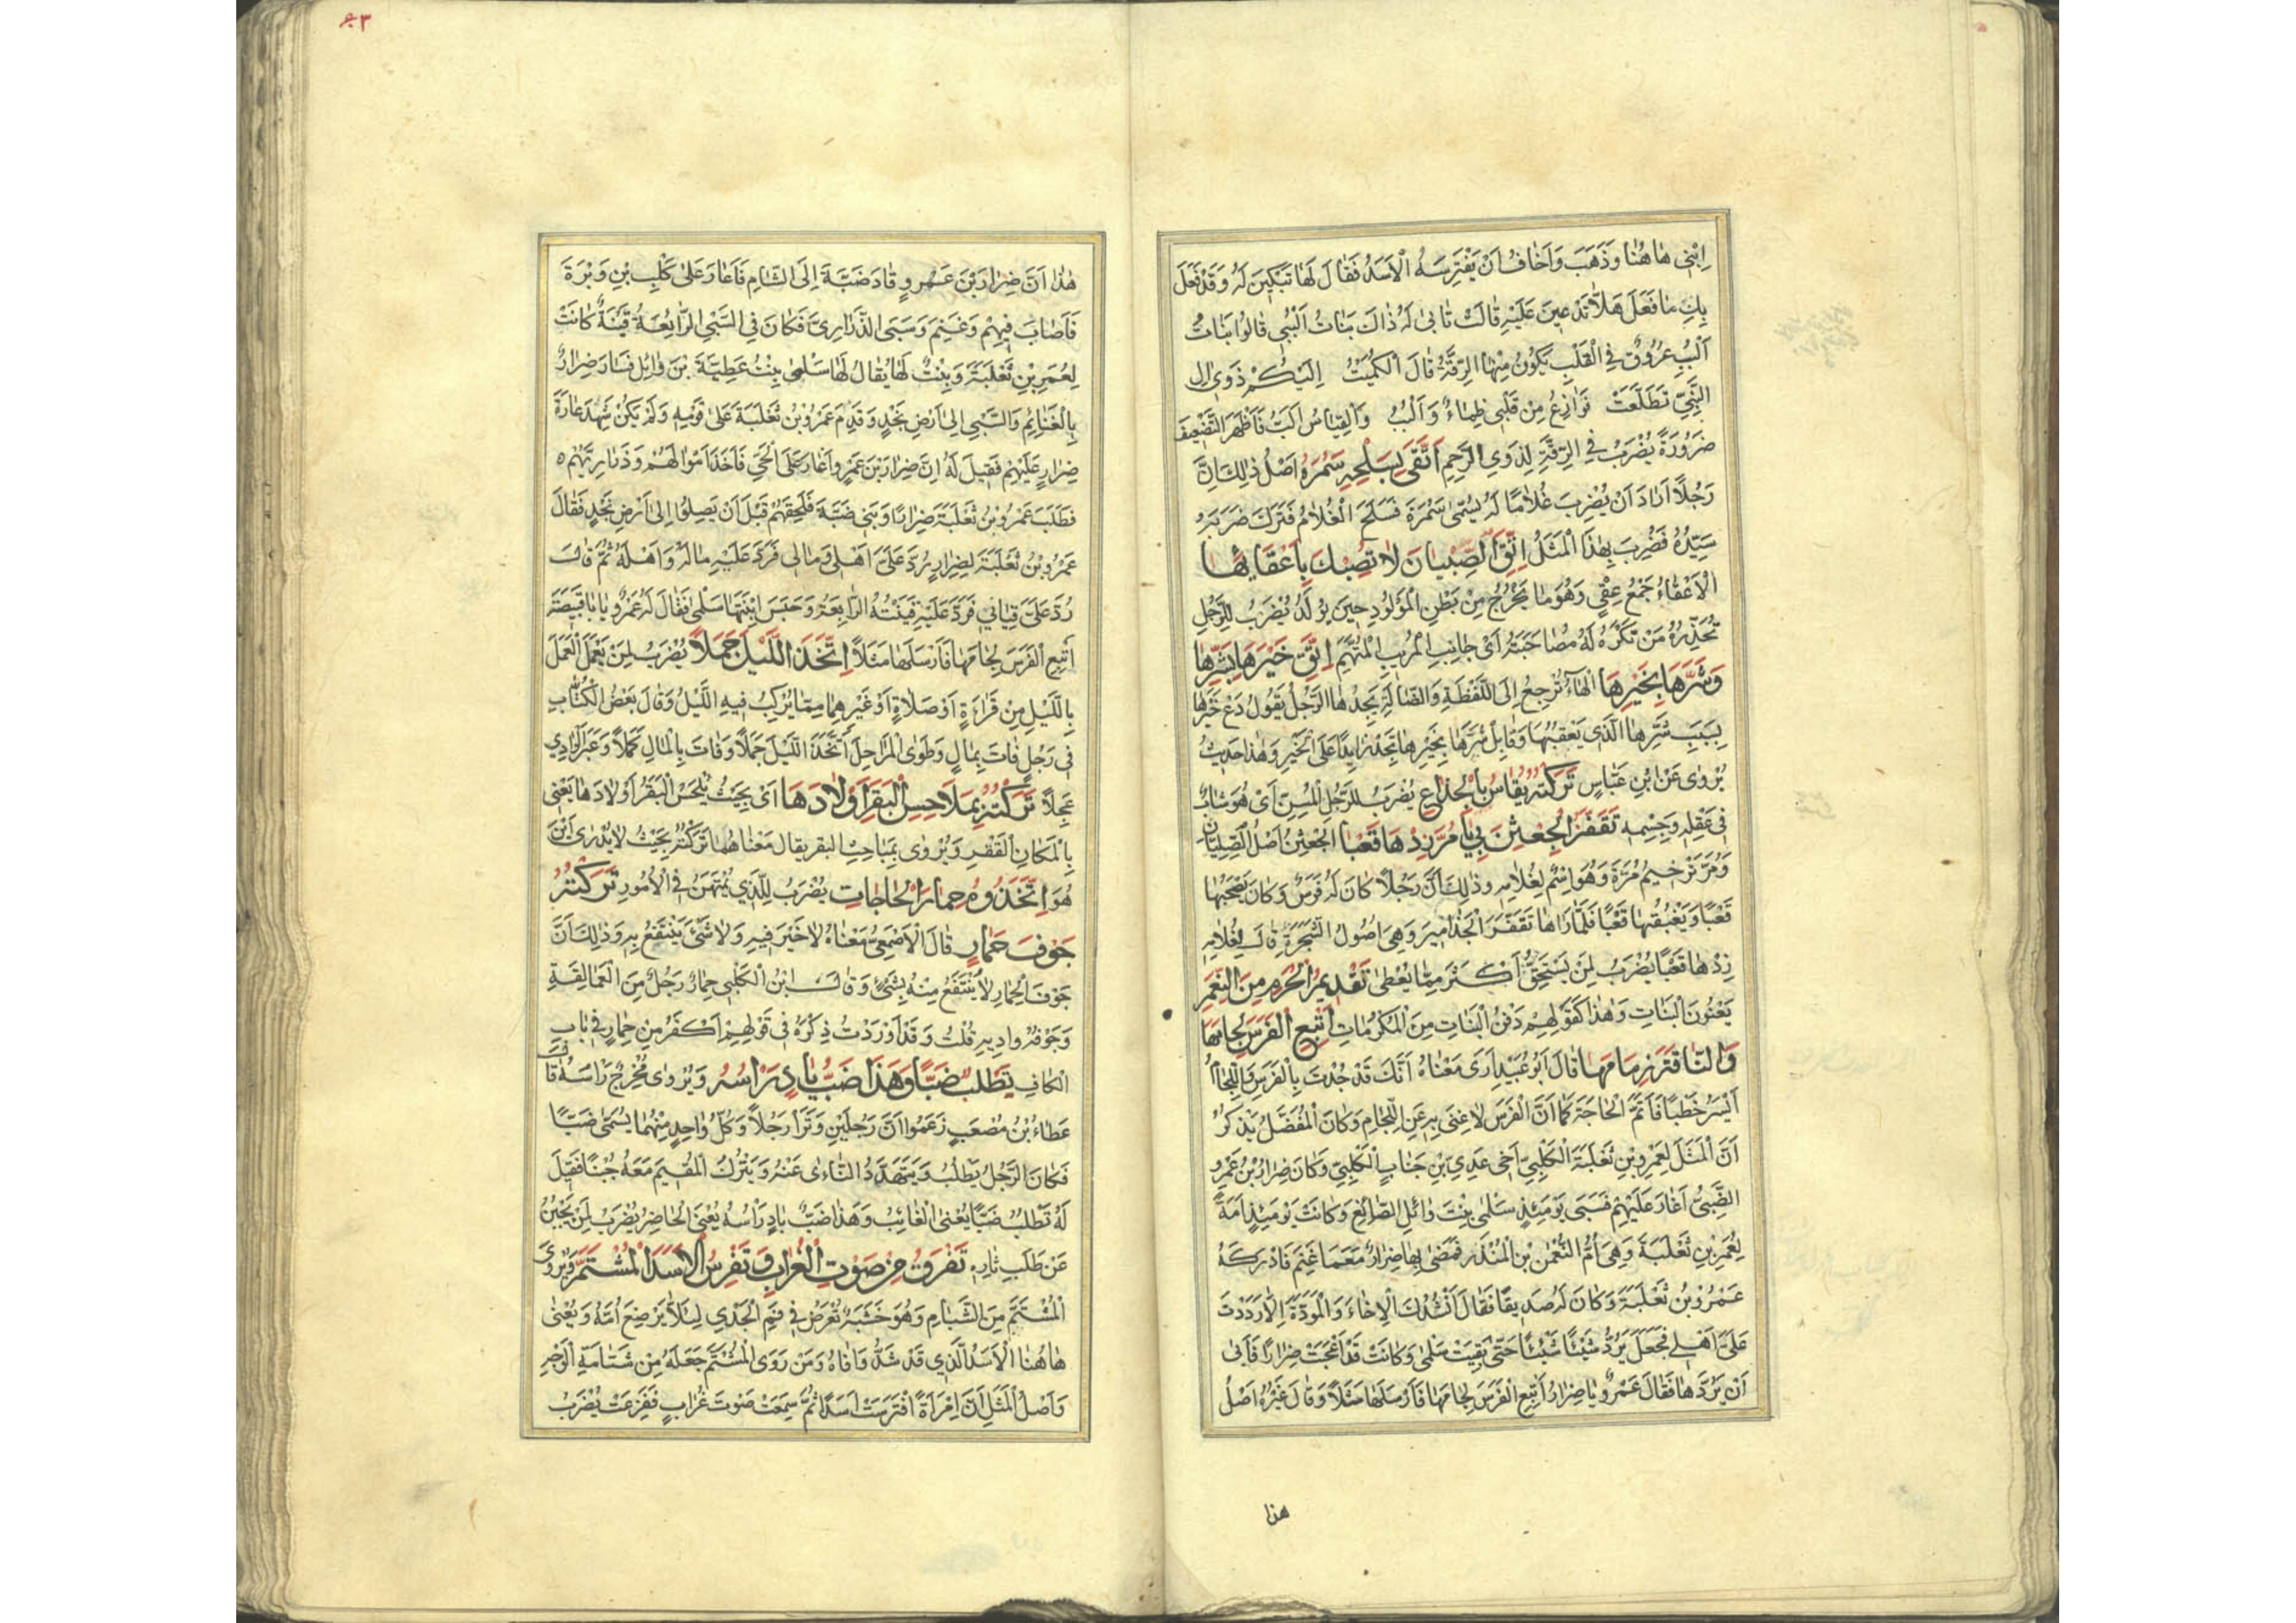 اِبْنِي هَاهُنَا وَذَهَبَ وَاَخَافُ اَنْ يَفْتَرِسَهُ الْاَسَدُ فَقَالَ لَهَا تَبْكِينَ لَهُ وَقَدْ فَعَلَ
بِكِ مَا فَعَلَ هَلَّا تَدْعِينَ عَلَيْهِ قَالَتْ تَاْبَى لَهُ ذَاكَ بَنَاتُ اَلْبُبِي قَالُوا بَنَاتُ
اَلْبُبٍ عُرُوقٌ فِي الْقَلْبِ يَكُونُ مِنْهَا الرِّقَّةُ قَالَ الْكُمَيْتُ اِلَيْكُمْ ذَوِي اٰلِ
النَّبِيِّ تَطَلَّعَتْ نَوَازِعُ مِنْ قَلْبِي ظِمَاءٌ وَاَلْبُبُ وَالْقِيَاسُ اَلَبُّ فَاَظْهَرَ التَّضْعِيفَ
ضَرُورَةً يُضْرَبُ فِي الرِّقَّةِ لِذَوِي الرَّحِمِ اَتَّقَى بِسَلْحِهِ سَمُرَةُ اَصْلُ ذٰلِكَ اَنَّ
رَجُلًا اَرَادَ اَنْ يُضْرِبَ غُلَامًا لَهُ يُسَمّٰى سَمُرَةَ فَسَلَحَ الْغُلَامُ فَتَرَكَ ضَرْبَهُ
سَيِّدُهُ فَضُرِبَ بِهٰذَا الْمَثَلُ اِتَّقِ الصِّبْيَانَ لَا تُصِبْكَ بِاَعْقَائِهَا
الْاَعْقَاءُ جَمْعُ عِقْيٍ وَهُوَ مَا يَخْرُجُ مِنْ بَطْنِ الْمَوْلُودِ حِينَ يُولَدُ يُضْرَبُ لِلرَّجُلِ
تُحَذِّرُهُ مَنْ تَكْرَهُ لَهُ مُصَاحَبَتَهُ اَيْ جَانِبِ الْمُرِيبَ الْمُتَّهَمَ اِتَّقِ خَيْرَهَا بِشَرِّهَا
وَشَرَّهَا بِخَيْرِهَا الْهَاءُ تَرْجِعُ اِلَى اللُّقَطَةِ وَالضَّالَّةِ يَجِدُهَا الرَّجُلُ يَقُولُ دَعْ خَيْرَهَا
بِسَبَبِ شَرِّهَا الَّذِي يَعْقُبُهَا وَقَابِلْ شَرَّهَا بِخَيْرِهَا تَجِدْ زَايِدًا عَلَى الْخَيْرِ وَهٰذَا حَدِيثٌ
يُرْوٰى عَنِ ابْنِ عَبَّاسٍ تَرَكْتُهُ يُقَاسُ بِالْجِذَاعِ يُضْرَبُ لِلرَّجُلِ الْمُسِنِّ اَيْ هُوَ شَابٌّ
فِي عَقْلِهِ وَجِسْمِهِ تَقَفَّزَ الْجِعْثِنَ بِي يَا مُرَّ زِدْهَا قَعْبًا الْجِعْثِنُ اَصْلُ الصِّلِّيَانِ
وَمُرَّ تَرْخِيمُ مُرَّةَ وَهُوَ اِسْمٌ لِغُلَامِهِ وَذٰلِكَ اَنَّ رَجُلًا كَانَ لَهُ فَرَسٌ وَكَانَ يَصْبَحُهَا
قَعْبًا وَيَغْبُقُهَا قَعْبًا فَلَمَّا رَاٰهَا تَقَفَّزَ الْجَذَامِيرَ وَهِيَ اُصُولُ الشَّجَرَةِ قَالَ لِغُلَامِهِ
زِدْهَا قَعْبًا يُضْرَبُ لِمَنْ يَسْتَحِقُّ اَكْثَرَ مِمَّا يُعْطٰى تَقْدِيمُ الْحُرَمِ مِنَ النِّعَمِ
يَعْنُونَ الْبَنَاتِ وَهٰذَا كَقَوْلِهِمْ دَفْنُ الْبَنَاتِ مِنَ الْمَكْرُمَاتِ اَتْبِعِ الْفَرَسَ لِجَامَهَا
وَالنَّاقَةَ زِمَامَهَا قَالَ اَبُو عُبَيْدٍ اَرَى مَعْنَاهُ اَنَّكَ قَدْ جُدْتَ بِالْفَرَسِ وَاللِّجَامُ
اَيْسَرُ خَطْبًا فَاَتِمَّ الْحَاجَةَ كَمَا اَنَّ الْفَرَسَ لَا غِنَى بِهِ عَنِ اللِّجَامِ وَكَانَ الْمُفَضَّلُ يَذْكُرُ
اَنَّ الْمَثَلَ لِعَمْرِو بْنِ ثَعْلَبَةَ الْكَلْبِيِّ اَخِي عَدِيِّ بْنِ جَنَابٍ الْكَلْبِيِّ وَكَانَ ضِرَارُ بْنُ عَمْرٍو
الضَّبِّيُّ اَغَارَ عَلَيْهِمْ فَسَبَى يَوْمَئِذٍ سَلْمٰى بِنْتَ وَائِلِ الصَّائِغِ وَكَانَتْ يَوْمَئِذٍ اَمَةً
لِعَمْرِو بْنِ ثَعْلَبَةَ وَهِيَ اُمُّ النُّعْمٰنِ بْنِ الْمُنْذِرِ فَمَضٰى بِهَا ضِرَارٌ مَعَ مَا غَنِمَ فَادْرَكَهُ
عَمْرُو بْنُ ثَعْلَبَةَ وَكَانَ لَهُ صَدِيقًا فَقَالَ اَنْشُدُكَ الْاِخَاءَ وَالْمَوَدَّةَ اِلَّا رَدَدْتَ
عَلَيَّ اَهْلِي فَجَعَلَ يَرُدُّ شَيْئًا شَيْئًا حَتّٰى بَقِيَتْ سَلْمٰى وَكَانَتْ قَدْ اَعْجَبَتْ ضِرَارًا فَاَبٰى
اَنْ يَرُدَّهَا فَقَالَ عَمْرٌو يَا ضِرَارُ اَتْبِعِ الْفَرَسَ لِجَامَهَا فَاَرْسَلَهَا مَثَلًا وَقَالَ غَيْرُهُ اَصْلُ
هذا
٣
هٰذَا اَنَّ ضِرَارَ بْنَ عَمْرٍو قَادَ ضَبَّةَ اِلَى الشَّامِ فَاَغَارَ عَلٰى كَلْبِ بْنِ وَبْرَةَ
فَاَصَابَ فِيهِمْ وَغَنِمَ وَسَبَى الذَّرَارِيَّ فَكَانَ فِي السَّبْيِ الرَّائِعَةُ قَيْنَةٌ كَانَتْ
لِعُمَرِ بْنِ ثَعْلَبَةَ وَبِنْتٌ لَهَا يُقَالُ لَهَا سَلْمٰى بِنْتُ عَطِيَّةَ بْنِ وَائِلٍ فَسَارَ ضِرَارٌ
بِالْغَنَائِمِ وَالسَّبْيِ اِلٰى اَرْضِ نَجْدٍ وَقَدِمَ عَمْرُو بْنُ ثَعْلَبَةَ عَلٰى قَوْمِهِ وَلَمْ يَكُنْ شَهِدَ غَارَةَ
ضِرَارٍ عَلَيْهِمْ فَقِيلَ لَهُ اِنَّ ضِرَارَ بْنَ عَمْرٍو اَغَارَ عَلَى الْحَيِّ فَاَخَذَ اَمْوَالَهُمْ وَذَرَارِيَّهُمْ
فَطَلَبَ عَمْرُو بْنُ ثَعْلَبَةَ ضِرَارًا وَبَنِي ضَبَّةَ فَلَحِقَهُمْ قَبْلَ اَنْ يَصِلُوا اِلٰى اَرْضِ نَجْدٍ فَقَالَ
عَمْرُو بْنُ ثَعْلَبَةَ لِضِرَارٍ رُدَّ عَلَيَّ اَهْلِي وَمَالِي فَرَدَّ عَلَيْهِ مَالَهُ وَاَهْلَهُ ثُمَّ قَالَ
رُدَّ عَلَيَّ قِيَانِي فَرَدَّ عَلَيْهِ قَيْنَتَهُ الرَّائِعَةَ وَحَبَسَ ابْنَتَهَا سَلْمٰى فَقَالَ لَهُ عَمْرٌو يَا بَا قَبِيصَةَ
اَتْبِعِ الْفَرَسَ لِجَامَهَا فَاَرْسَلَهَا مَثَلًا اِتَّخَذَ اللَّيْلَ جَمَلًا يُضْرَبُ لِمَنْ يَعْمَلُ الْعَمَلَ
بِاللَّيْلِ مِنْ قِرَاءَةٍ اَوْ صَلَاةٍ اَوْ غَيْرِهِمَا مِمَّا يُرْكَبُ فِيهِ اللَّيْلُ وَقَالَ بَعْضُ الْكُتَّابِ
فِي رَجُلٍ فَاتَ بِمَالٍ وَطَوٰى الْمَرَاحِلَ اَتَّخَذَ اللَّيْلَ جَمَلًا وَفَاتَ بِالْمَالِ كَمَلًا وَعَبَرَ الْوَادِي
عَجِلًا تَرَكْتُهُ بِمَلَاحِسِ الْبَقَرِ اَوْلَادَهَا اَيْ بِحَيْثُ تَلْحَسُ الْبَقَرُ اَوْلَادَهَا يَعْنِي
بِالْمَكَانِ الْقَفْرِ وَيُرْوٰى بِمَبَاحِثِ البقر يقال مَعْنَاهُمَا تَرَكْتُهُ بِحَيْثُ لَا يُدْرٰى اَيْنَ
هُوَ اِتَّخَذُوهُ حِمَارَ الْحَاجَاتِ يُضْرَبُ لِلَّذِي يُمْتَهَنُ فِي الْاُمُورِ تَرَكْتُهُ
جَوْفَ حِمَارٍ قَالَ الْاَصْمَعِيُّ مَعْنَاهُ لَا خَيْرَ فِيهِ وَلَا شَيْءَ يُنْتَفَعُ بِهِ وَذٰلِكَ اَنَّ
جَوْفَ الْحِمَارِ لَا يُنْتَفَعُ مِنْهُ بِشَيْءٍ وَقَالَ ابْنُ الْكَلْبِيِّ حِمَارٌ رَجُلٌ مِنَ الْعَمَالِقَةِ
وَجَوْفُهُ وَادِيهِ قُلْتُ وَقَدْ اَوْرَدْتُ ذِكْرَهُ فِي قَوْلِهِمْ اَكْفَرُ مِنْ حِمَارٍ فِي بَابِ
الْكَافِ تَطْلُبُ ضَبًّا وَهَذَا ضَبٌّ بَادٍ رَاْسُهُ وَيُرْوٰى مُخْرِجٌ رَاْسَهُ قَالَ
عَطَاءُ بْنُ مُصْعَبٍ زَعَمُوا اَنَّ رَجُلَيْنِ وَتَرَا رَجُلًا وَكُلُّ وَاحِدٍ مِنْهُمَا يُسَمّٰى ضَبًّا
فَكَانَ الرَّجُلُ يَطْلُبُ وَيَتَهَدَّدُ النَّاءِىَ عَنْهُ وَيَتْرُكُ الْمُقِيمَ مَعَهُ جُبْنًا فَقِيلَ
لَهُ تَطْلُبُ ضَبًّا يَعْنِي الْغَائِبَ وَهٰذَا ضَبٌّ بَادٍ رَاْسُهُ يَعْنِي الْحَاضِرَ يُضْرَبُ لِمَنْ يَجْبُنُ
عَنْ طَلَبِ ثَارِهِ تَفْرَقُ مِنْ صَوْتِ الْغُرَابِ وَتَفْرِسُ الْاَسَدَ الْمُشْتَمَّ وَيُرْوٰى
الْمُشْتَمَّ مِنَ الشِّبَامِ وَهُوَ خَشَبَةٌ تُعْرَضُ فِي فَمِ الْجَدْيِ لِئَلَّا يَرْضِعَ اُمَّهُ وَيَعْنِي
هَاهُنَا الْاَسَدَ الَّذِي قَدْ شُدَّ فَاهُ وَمَنْ رَوَى الْمُشْتَمَّ جَعَلَهُ مِنْ شَتَامَةِ الْوَجْهِ
وَاَصْلُ الْمَثَلِ اَنَّ اِمْرَاَةً افْتَرَسَتْ اَسَدًا ثُمَّ سَمِعَتْ صَوْتَ غُرَابٍ فَفَزِعَتْ يُضْرَبُ